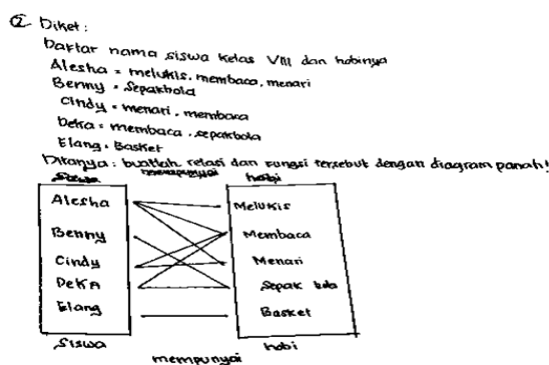 2. Diket:
Daftar nama siswa kelas VIII dan hobinya
Alesha = melukis, membaca, menari
Benny = Sepakbola
Cindy = menari, membaca
Deka = membaca, sepakbola
Elang = Basket
Ditanya: buatlah relasi dan fungsi tersebut dengan diagram panah!
Siswa mempunyai hobi
Alesha Melukis
Benny Membaca
Cindy Menari
DeKA Sepak bola
Elang Basket
Siswa hobi
mempunyai